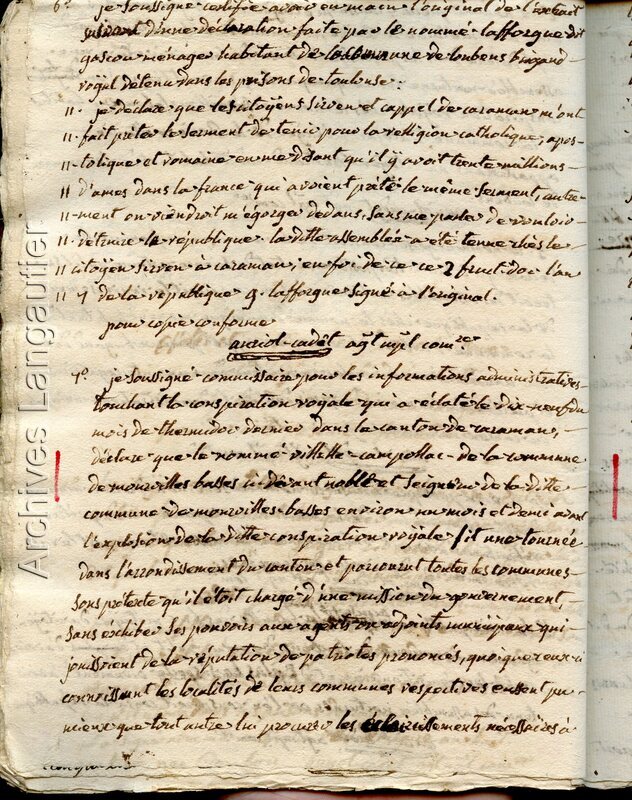 6º je soussigné certifie avoir en main l'original de l'extrait
suivant d'une déclaration faite par le nommé lafforgue dit
gascou ménager habitant de la commune de loubens brigand
royal détenu dans les prisons de toulouse:
11. je déclare que les citoyens sirven et cappel de caraman m'ont
11. fait prêter le serment de tenir pour la relligion catholique, apos-
11- tolique et romaine en me disant qu'il y avoit trente millions-
11 d'ames dans la france qui avoient prêté le même serment, autre-
11- ment on viendroit m'égorger dedans, sans me parler de vouloir
11. détruire la république. la ditte assemblée a été tenue chés le-
11 citoyen sirven à caraman; en foi de ce ce 2 fruct.dor l'an
11 7 de la république lafforgue signé à l'original.
pour copie conforme
auriol-cadet agt mpl comre
7º je soussigné commissaire pour les informations administratives
touchant la conspiration royale qui a éclaté le dix-neuf du
mois de thermidor dernier dans le canton de caraman,
déclare que le nommé villette-campollac de la commune
de mourvilles basses ci-dévant noble et seigneur de la ditte
commune de mourvilles-basses environ un mois et demi avant
l'explosion de la ditte conspiration royale fit une tournée
dans l'arrondissement du canton et parcourut toutes les communes
sous prétexte qu'il étoit chargé d'une mission du gouvernement,
sans exhiber ses pouvoirs aux agents ou adjoints municipaux qui
jouissoient de la réputation de patriotes prononcés, quoique ceux-ci
connoissant les localités de leurs communes respectives eussent pu
mieux que tout autre lui procurer les éclaircissements nécessaires à
Archives Langautier